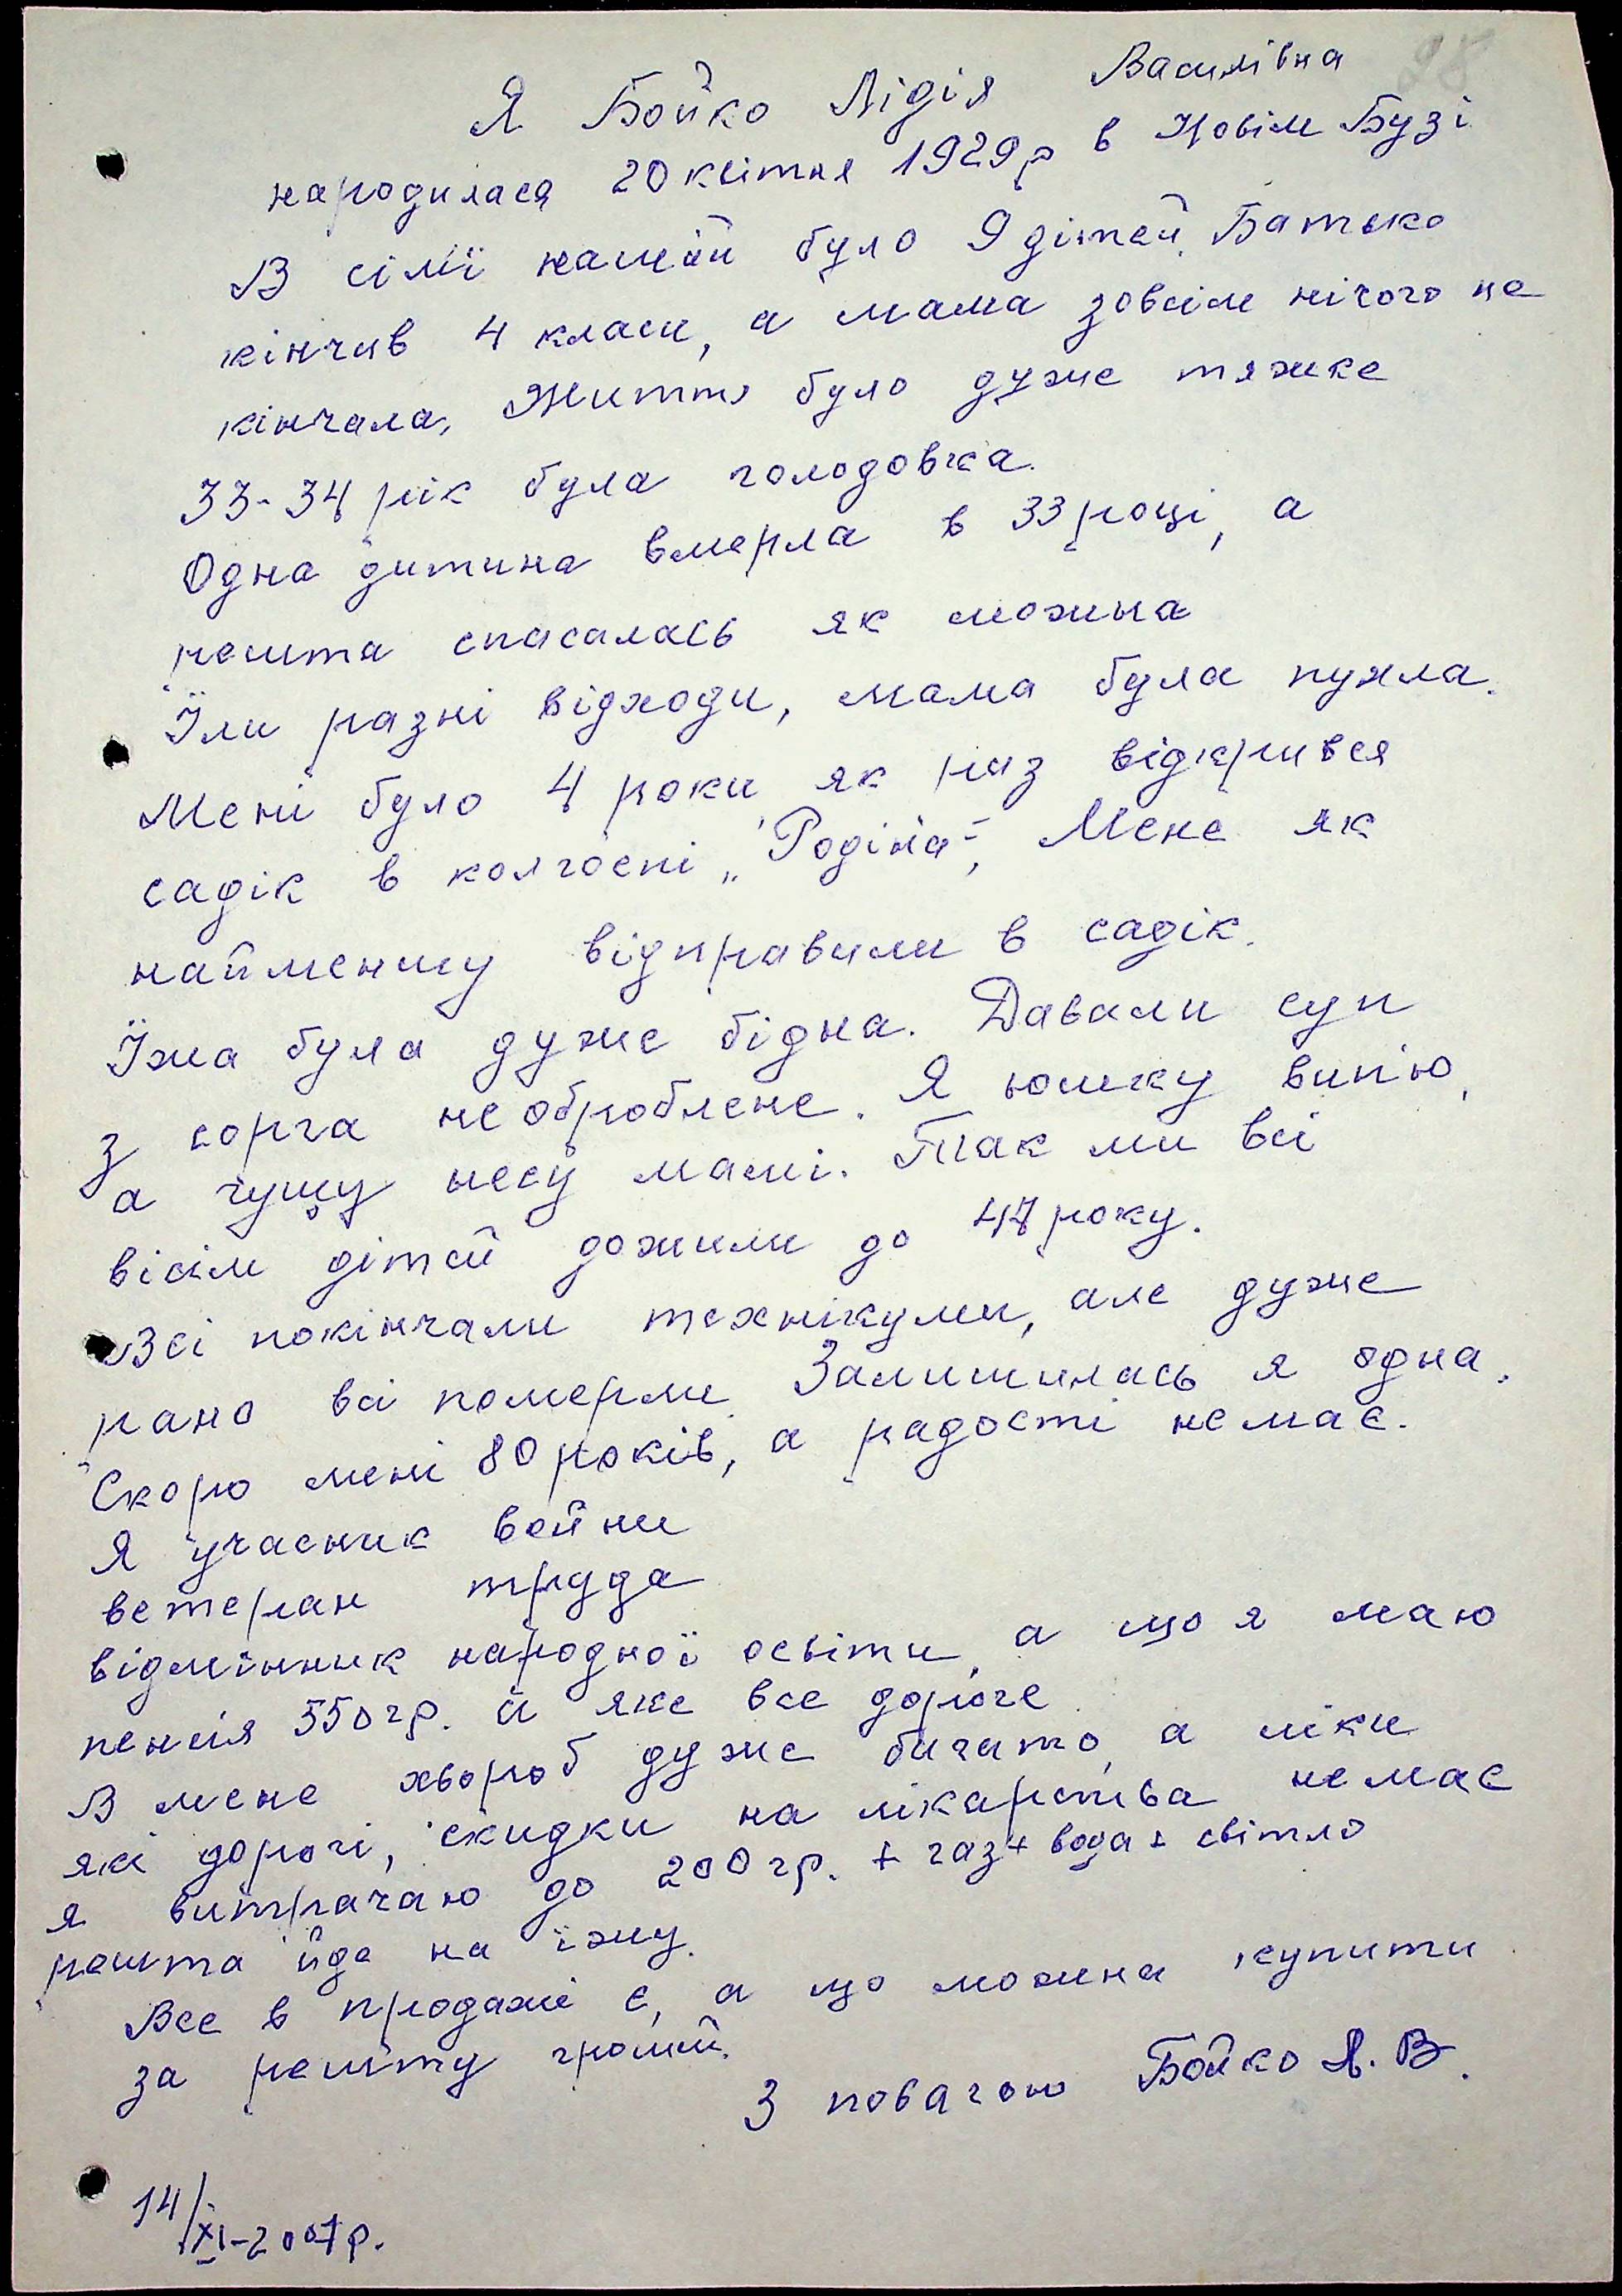 28
Я Бойко Лідія Василівна
народилася 20 квітня 1929 р в Новім Бузі
В сім'ї нашій було 9 дітей. Батько
кінчив 4 класи, а мама зовсім нічого не
кінчала, Життя було дуже тяжке
33-34 рік була голодовка.
Одна дитина вмерла в 33 році, а
решта спасалась як можна
Їли разні відходи, мама була пухла.
Мені було 4 роки як раз відкрився
садік в колгоспі „Родіна", Мене як
найменшу відправили в садік.
Їжа була дуже бідна. Давали суп
з сорга необроблене. Я юшку випію,
а гущу несу мамі. Так ми всі
вісім дітей дожили до 47 року.
Всі покінчали технікуми, але дуже
рано всі померли. Залишилась я одна.
Скоро мені 80 років, а радості немає.
Я учасник войни
ветеран труда
відмінник народної освіти, а що я маю
пенсія 550 гр. й яке все дороге
В мене хвороб дуже багато, а ліки
які дорогі, скидки на лікарства немає
я витрачаю до 200 гр. + газ + вода + світло
решта йде на їжу.
Все в продажі є, а що можна купити
за решту грошей.
З повагою Бойко Л. В.
14/XI-2007 р.